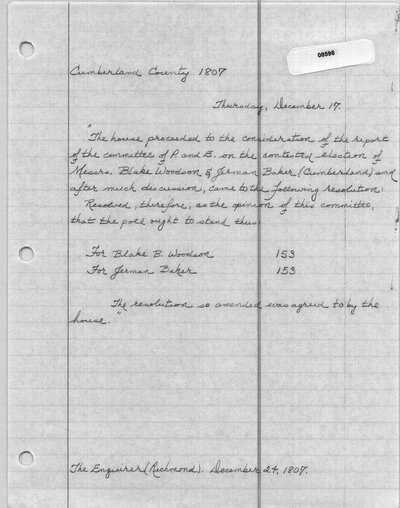 08598
Cumberland County 1807
Thursday, December 17.
"The house proceeded to the consideration of the report
of the committee of P. and E. on the contested election of
Messrs. Blake Woodson & Jerman Baker (Cumberland) and
after much discussion, came to the following resolution:
Resolved, therefore, as the opinion of this committee,
that the poll ought to stand thus:
For Blake B. Woodson 153
For Jerman Baker 153
The resolution so amended was agreed to by the
house."
The Enquirer (Richmond). December 24, 1807.